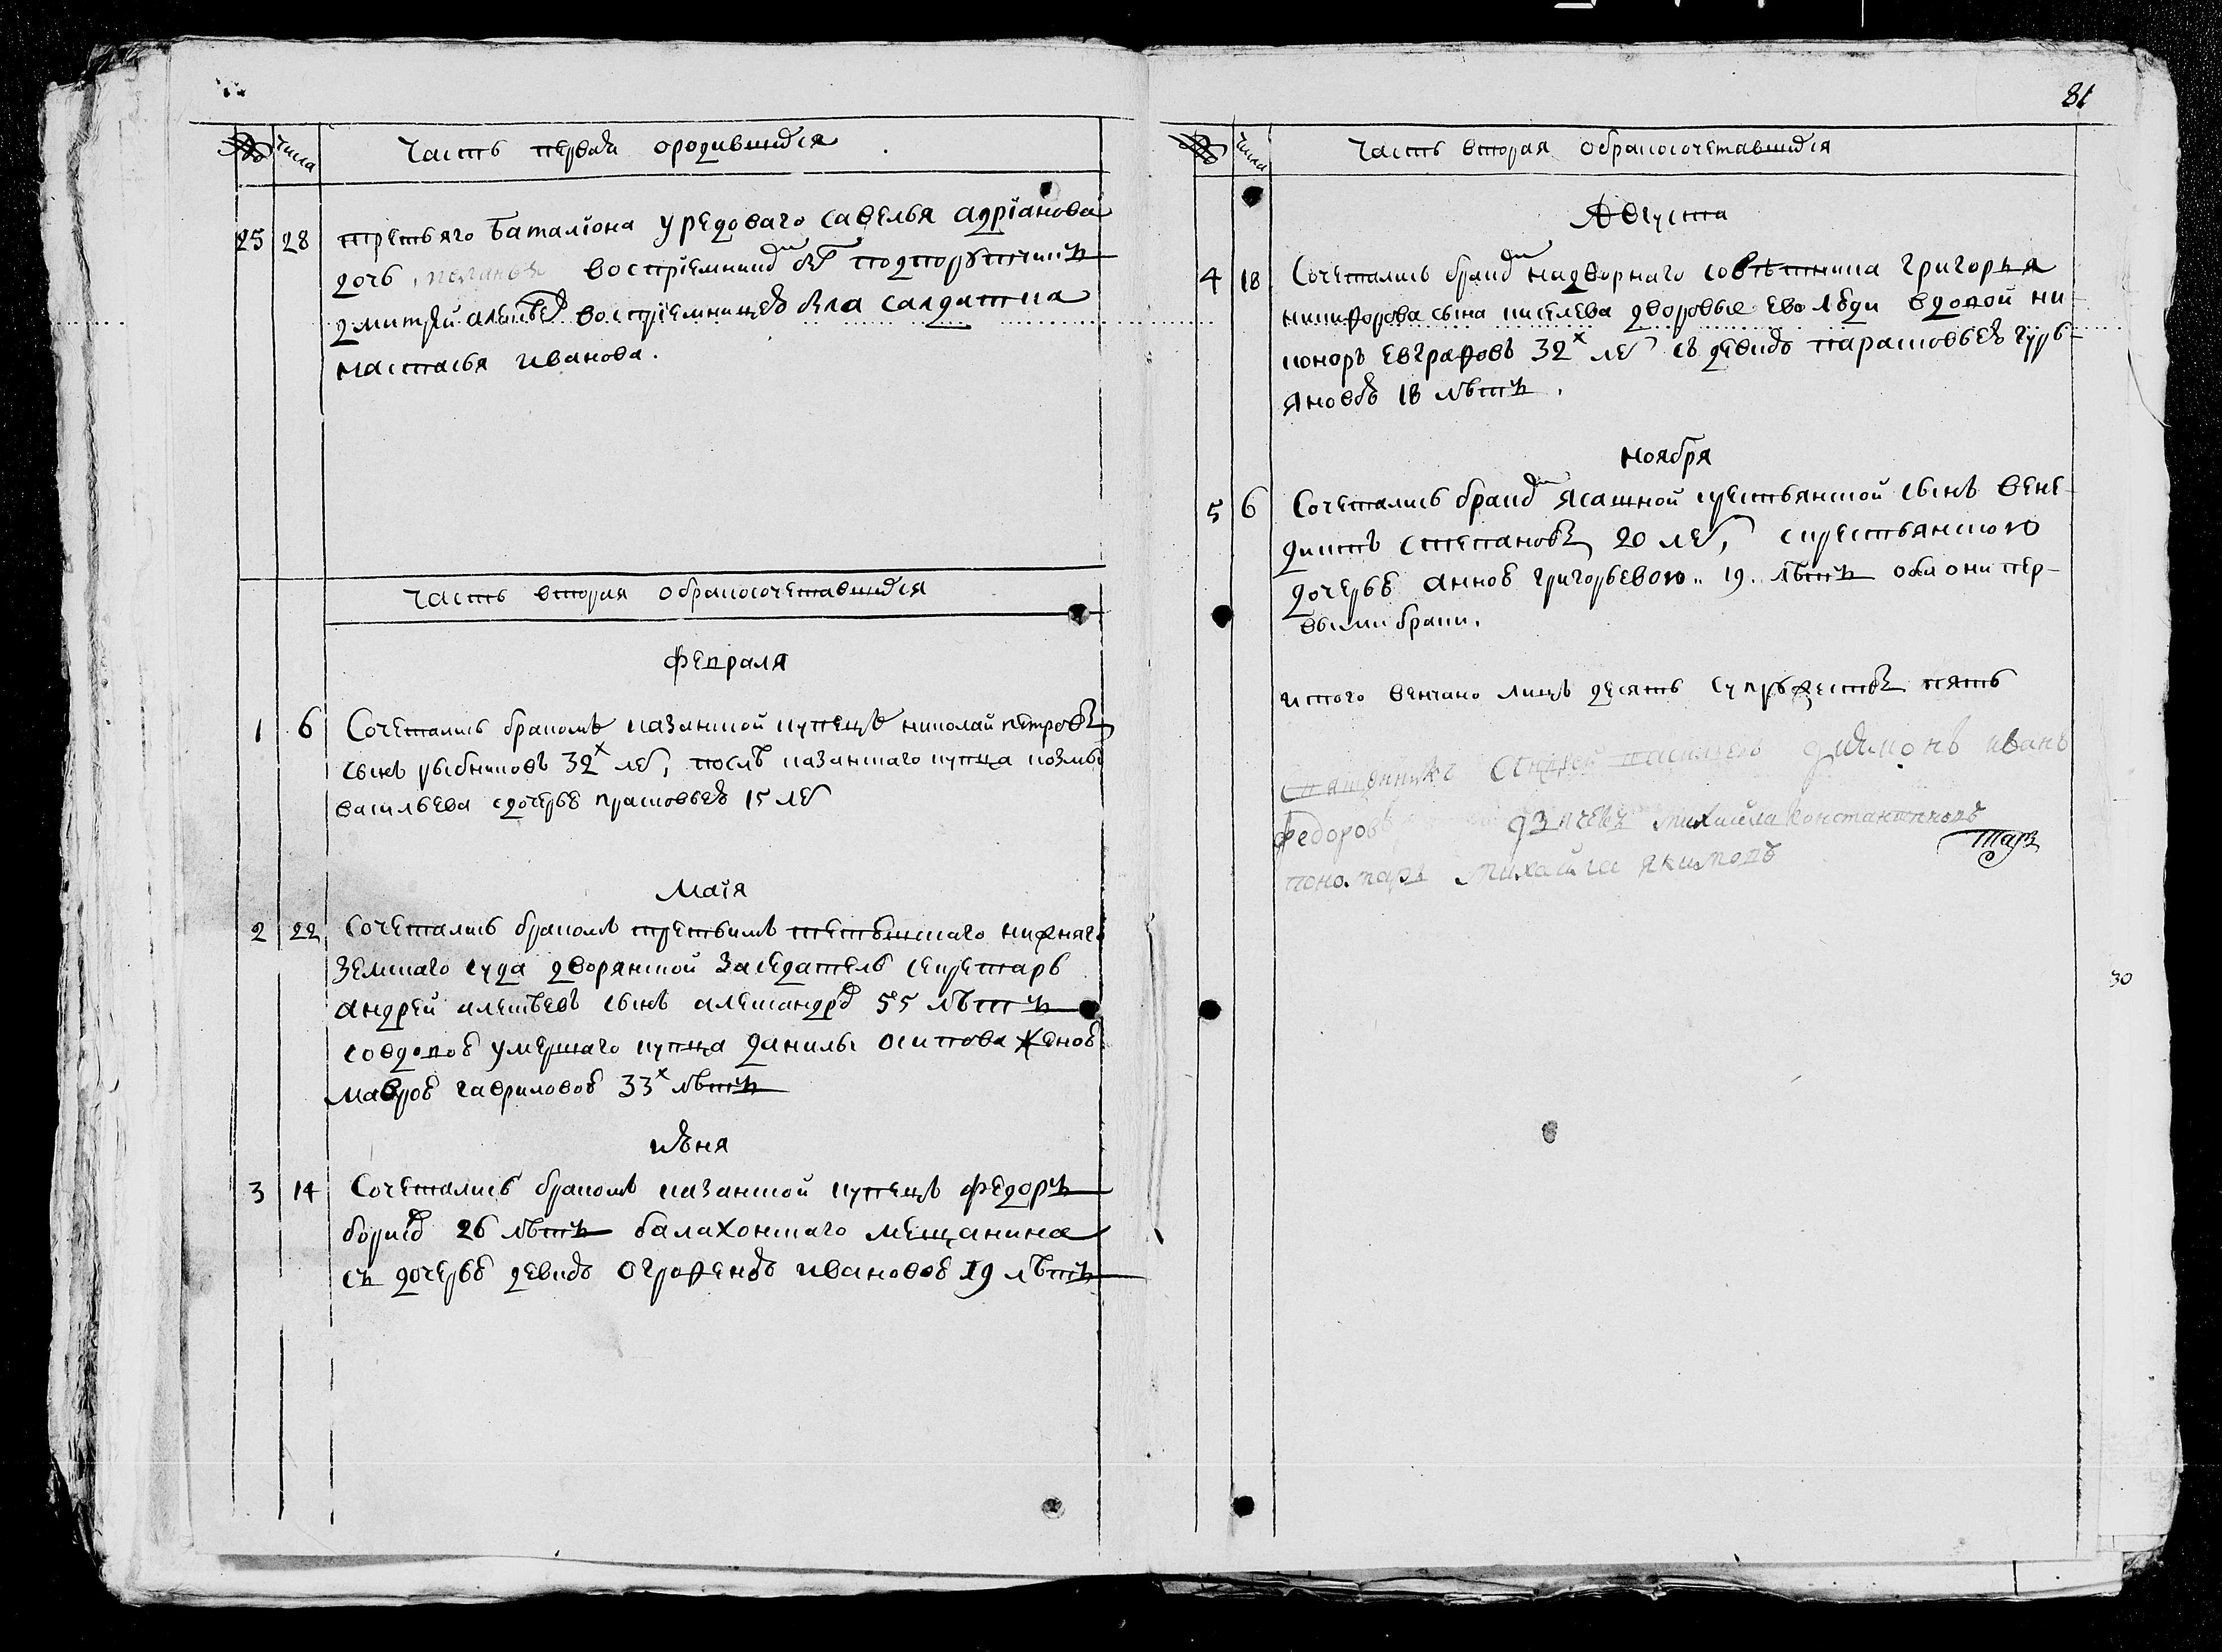 № Числа Часть первая ородившихся
25 28 третьяго баталiона урядоваго савелья адрiанова
дочь воспрiемникомъ былъ подпорутчикъ
дмитрiй алексѣевъ воспрiемницею была салдатка
настасья иванова.
Часть вторая обракосочетавшихся
февраля
1 6 Сочетались бракомъ казанской купецъ николай петровъ
сынъ рыбниковъ 32х лѣтъ, послѣ казанскаго купца козмы
васильева сдочерью прасковьею 15 летъ
маiя
2 22 Сочетались бракомъ третьимъ нижняго
земскаго суда дворянской заседатель секретарь
андрей алексѣевъ сынъ александровъ 55 лѣтъ
совдовою умершаго купца данилы осипова женою
маврою гавриловою 33х лѣтъ
июня
3 14 Сочетались бракомъ казанской купецъ федоръ
борисовъ 26 лѣтъ балахонскаго мещанина
съ дочерью девицеюОграфеною ивановою 19 лѣтъ
81
№ Числа Часть вторая обракосочетавшихся
Августа
4 18 Сочетались бракомъ надворнаго совѣтника григорья
никифорова сына киселева дворовые ево люди вдовой ни-
каноръ евграфовъ 32х летъ съ девицею парасковьею гурь-
яновою 18 лѣтъ.
ноября
5 6 Сочетались бракомъ ясашной крестьянской сынъ вене-
диктъ степановъ 20 летъ, скрестьянскою
дочерью анною григорьевою 19. лѣтъ оба они пер-
вымъ бракомъ.
итого венчано лицъ десять супружествъ пять
Священникъ Андрей васильевъ диаконъ иванъ
Федоровъ дьячекъ михаила Константиновъ
пономарь михайла якимовъ
30